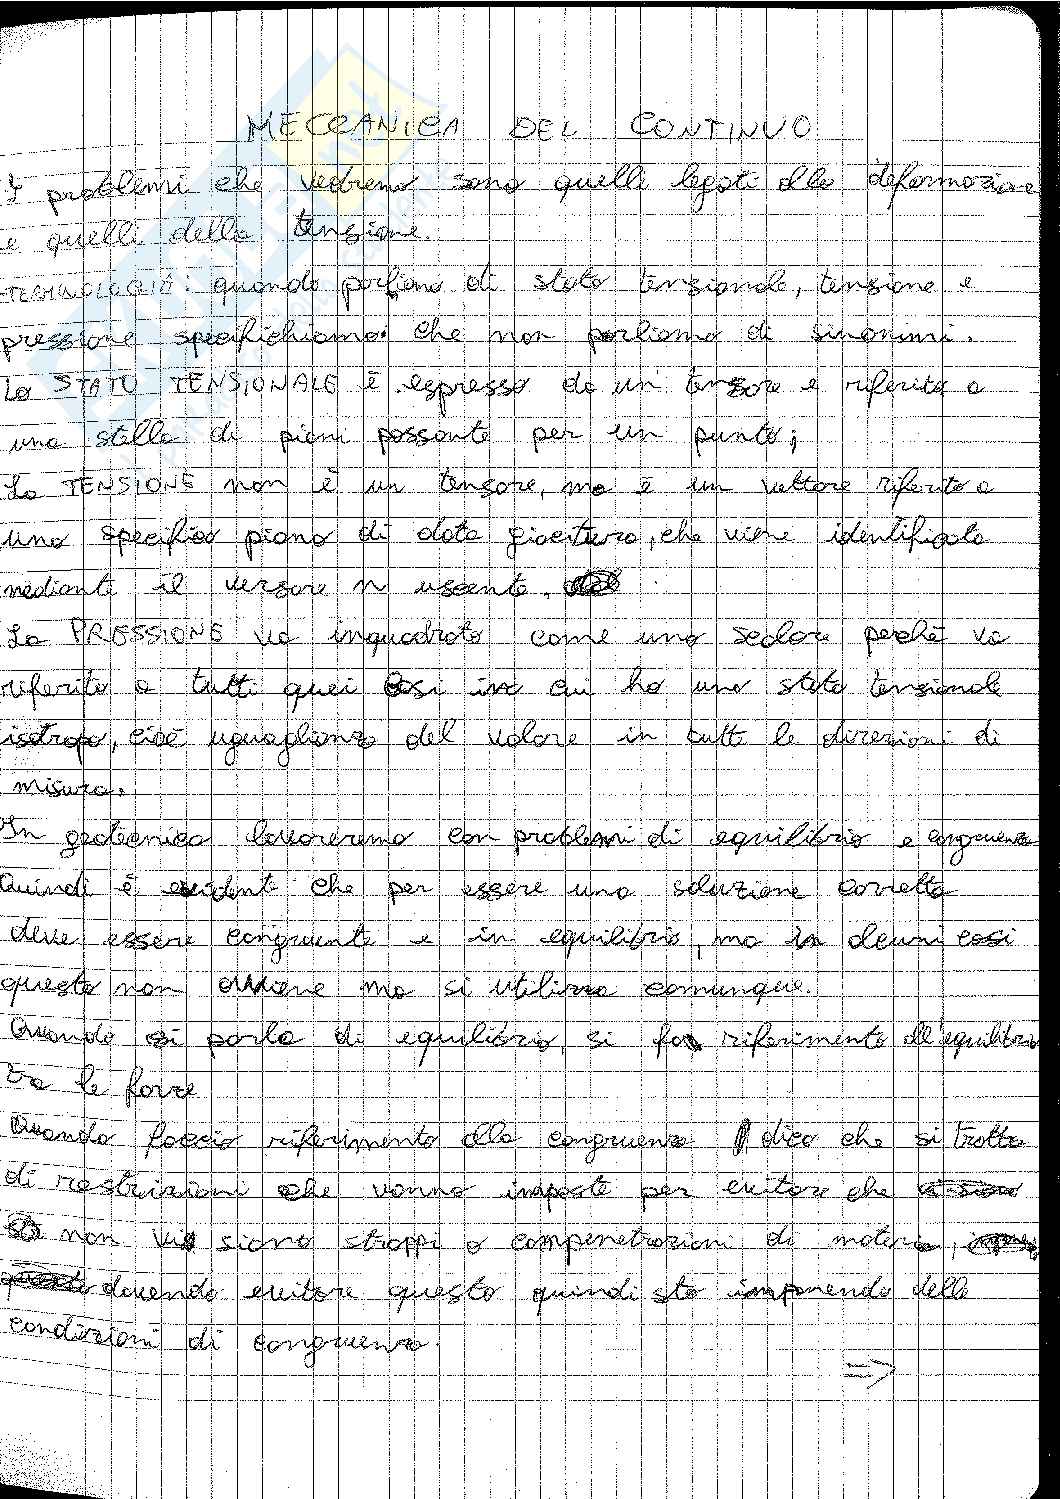 MECCANICA DEL CONTINUO
I problemi che vedremo sono quelli legati alla deformazione
e quelli della tensione.
TERMINOLOGIA: quando parliamo di stato tensionale, tensione e
pressione specifichiamo che non parliamo di sinonimi.
Lo STATO TENSIONALE è espresso da un tensore e riferito a
una stella di piani passante per un punto;
La TENSIONE non è un tensore, ma è un vettore riferito a
uno specifico piano di data giacitura, che viene identificato
mediante il versore n uscente.
La PRESSIONE va inquadrata come uno scalare perché va
riferita a tutti quei casi in cui ho uno stato tensionale
isotropo, cioè uguaglianza del valore in tutte le direzioni di
misura.
In geotecnica lavoreremo con problemi di equilibrio e congruenza
Quindi è evidente che per essere una soluzione corretta
deve essere congruente e in equilibrio, ma in alcuni casi
questo non avviene ma si utilizza comunque.
Quando si parla di equilibrio, si fa riferimento all'equilibrio
tra le forze
Quando faccio riferimento alla congruenza dico che si tratta
di restrizioni che vanno imposte per evitare che
non vi siano strappi o compenetrazioni di materia,
dovendo evitare questo quindi sto imponendo delle
condizioni di congruenza.
=>